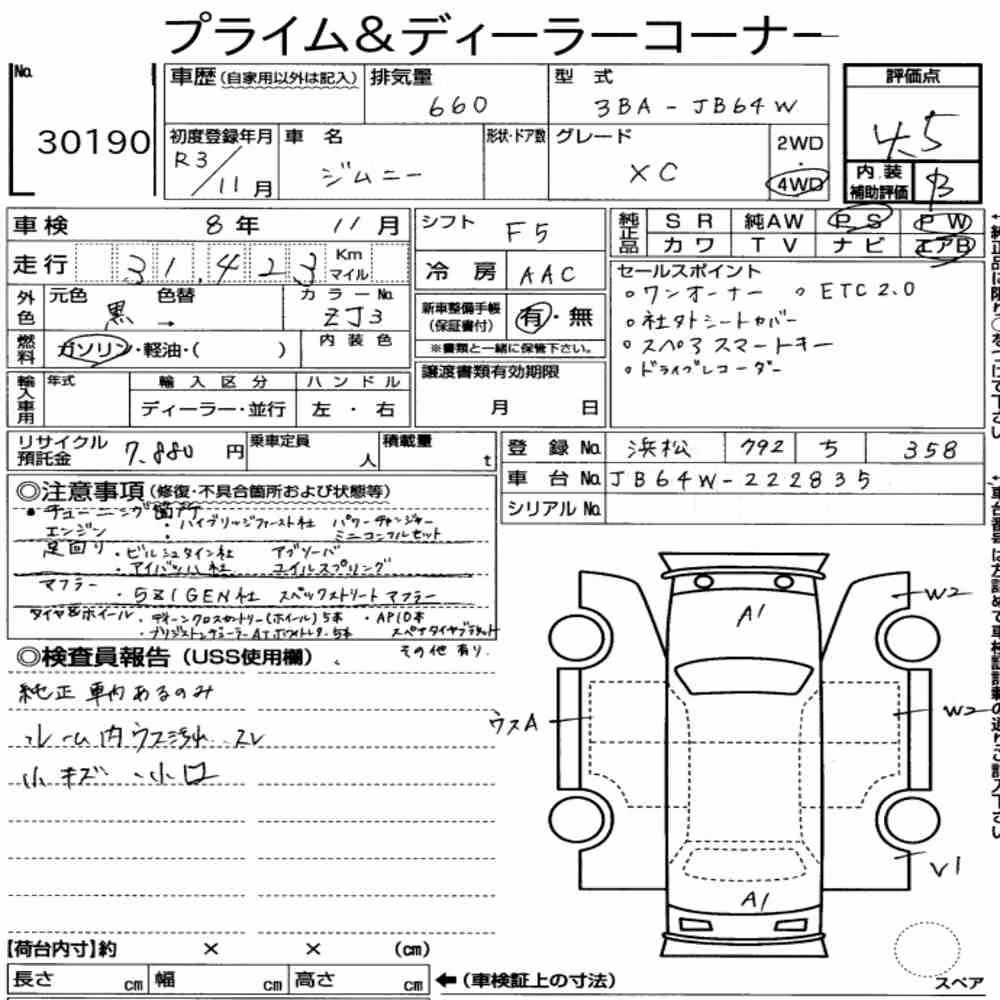 プライム&ディーラーコーナー
No. 30190
車歴(自家用以外は記入)
排気量 660
型式 3BA-JB64W
評価点 4.5
初度登録年月 R3/11月
車名 ジムニー
形状・ドア数
グレード XC
2WD・4WD
内装補助評価 B
車検 8年 11月
シフト F5
純正品 SR 純AW PS PW
カワ TV ナビ エアB
走行 31,423 Km マイル
冷房 AAC
セールスポイント
○ワンオーナー ○ETC2.0
○社外シートカバー
○スペ3 スマートキー
○ドライブレコーダー
外色 元色 黒 色替 → カラーNo. ZJ3
新車整備手帳(保証書付) 有・無
※書類と一緒に保管下さい。
燃料 ガソリン・軽油・( )
内装色
輸入車用 年式 輸入区分 ハンドル
ディーラー・並行 左・右
譲渡書類有効期限
月 日
リサイクル預託金 7,880円
乗車定員 人
積載量 t
登録No. 浜松 792 ち 358
車台No. JB64W-222835
シリアルNo.
◎注意事項(修復・不具合箇所および状態等)
●チューニング箇所
エンジン ・ハイブリッジファースト社 パワーチャンジャー
ミニコンフルセット
足回り ・ビルシュタイン社 アブソーバ
・アイバッハ社 コイルスプリング
マフラー ・5ZIGEN社 スペックストリートマフラー
タイヤ&ホイール ・ディーンクロスカントリー(ホイール)5本 ・API0本
・ブリジストンデューラーATホワイトレター5本 スペアタイヤブラケット
その他有り.
◎検査員報告(USS使用欄)
純正 車内あるのみ
ルーム内ウス汚れ・スレ
小キズ・小凹
A1
W2
ウスA
W2
V1
A1
【荷台内寸】約 × × (cm)
長さ cm 幅 cm 高さ cm
←(車検証上の寸法)
スペア